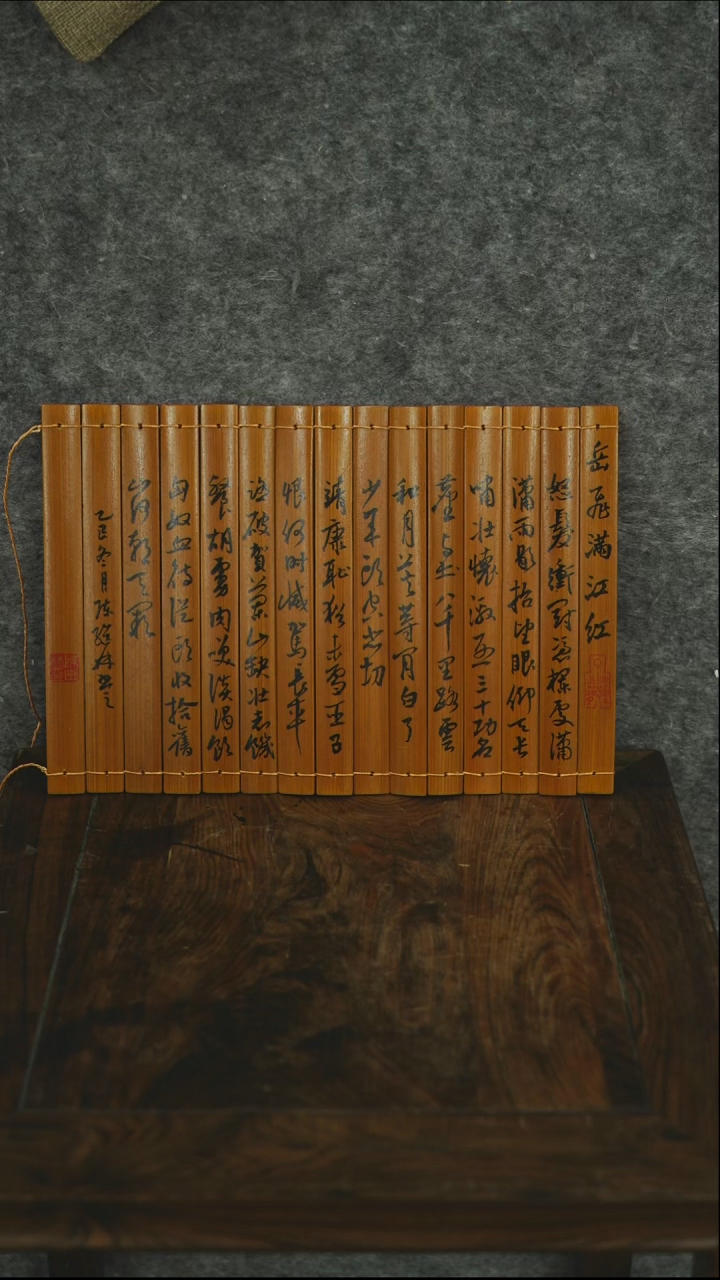 岳飛满江红
怒髮衝冠憑欄處瀟
瀟雨歇抬望眼仰天长
嘯壮懷激烈三十功名
塵与土八千里路雲
和月莫等閒白了
少年头空悲切
靖康恥猶未雪臣子
恨何時滅駕長車
踏破賀蘭山缺壮志饑
餐胡虜肉笑談渴飲
匈奴血待從头收拾舊
山河朝天闕
乙巳冬月陈书之